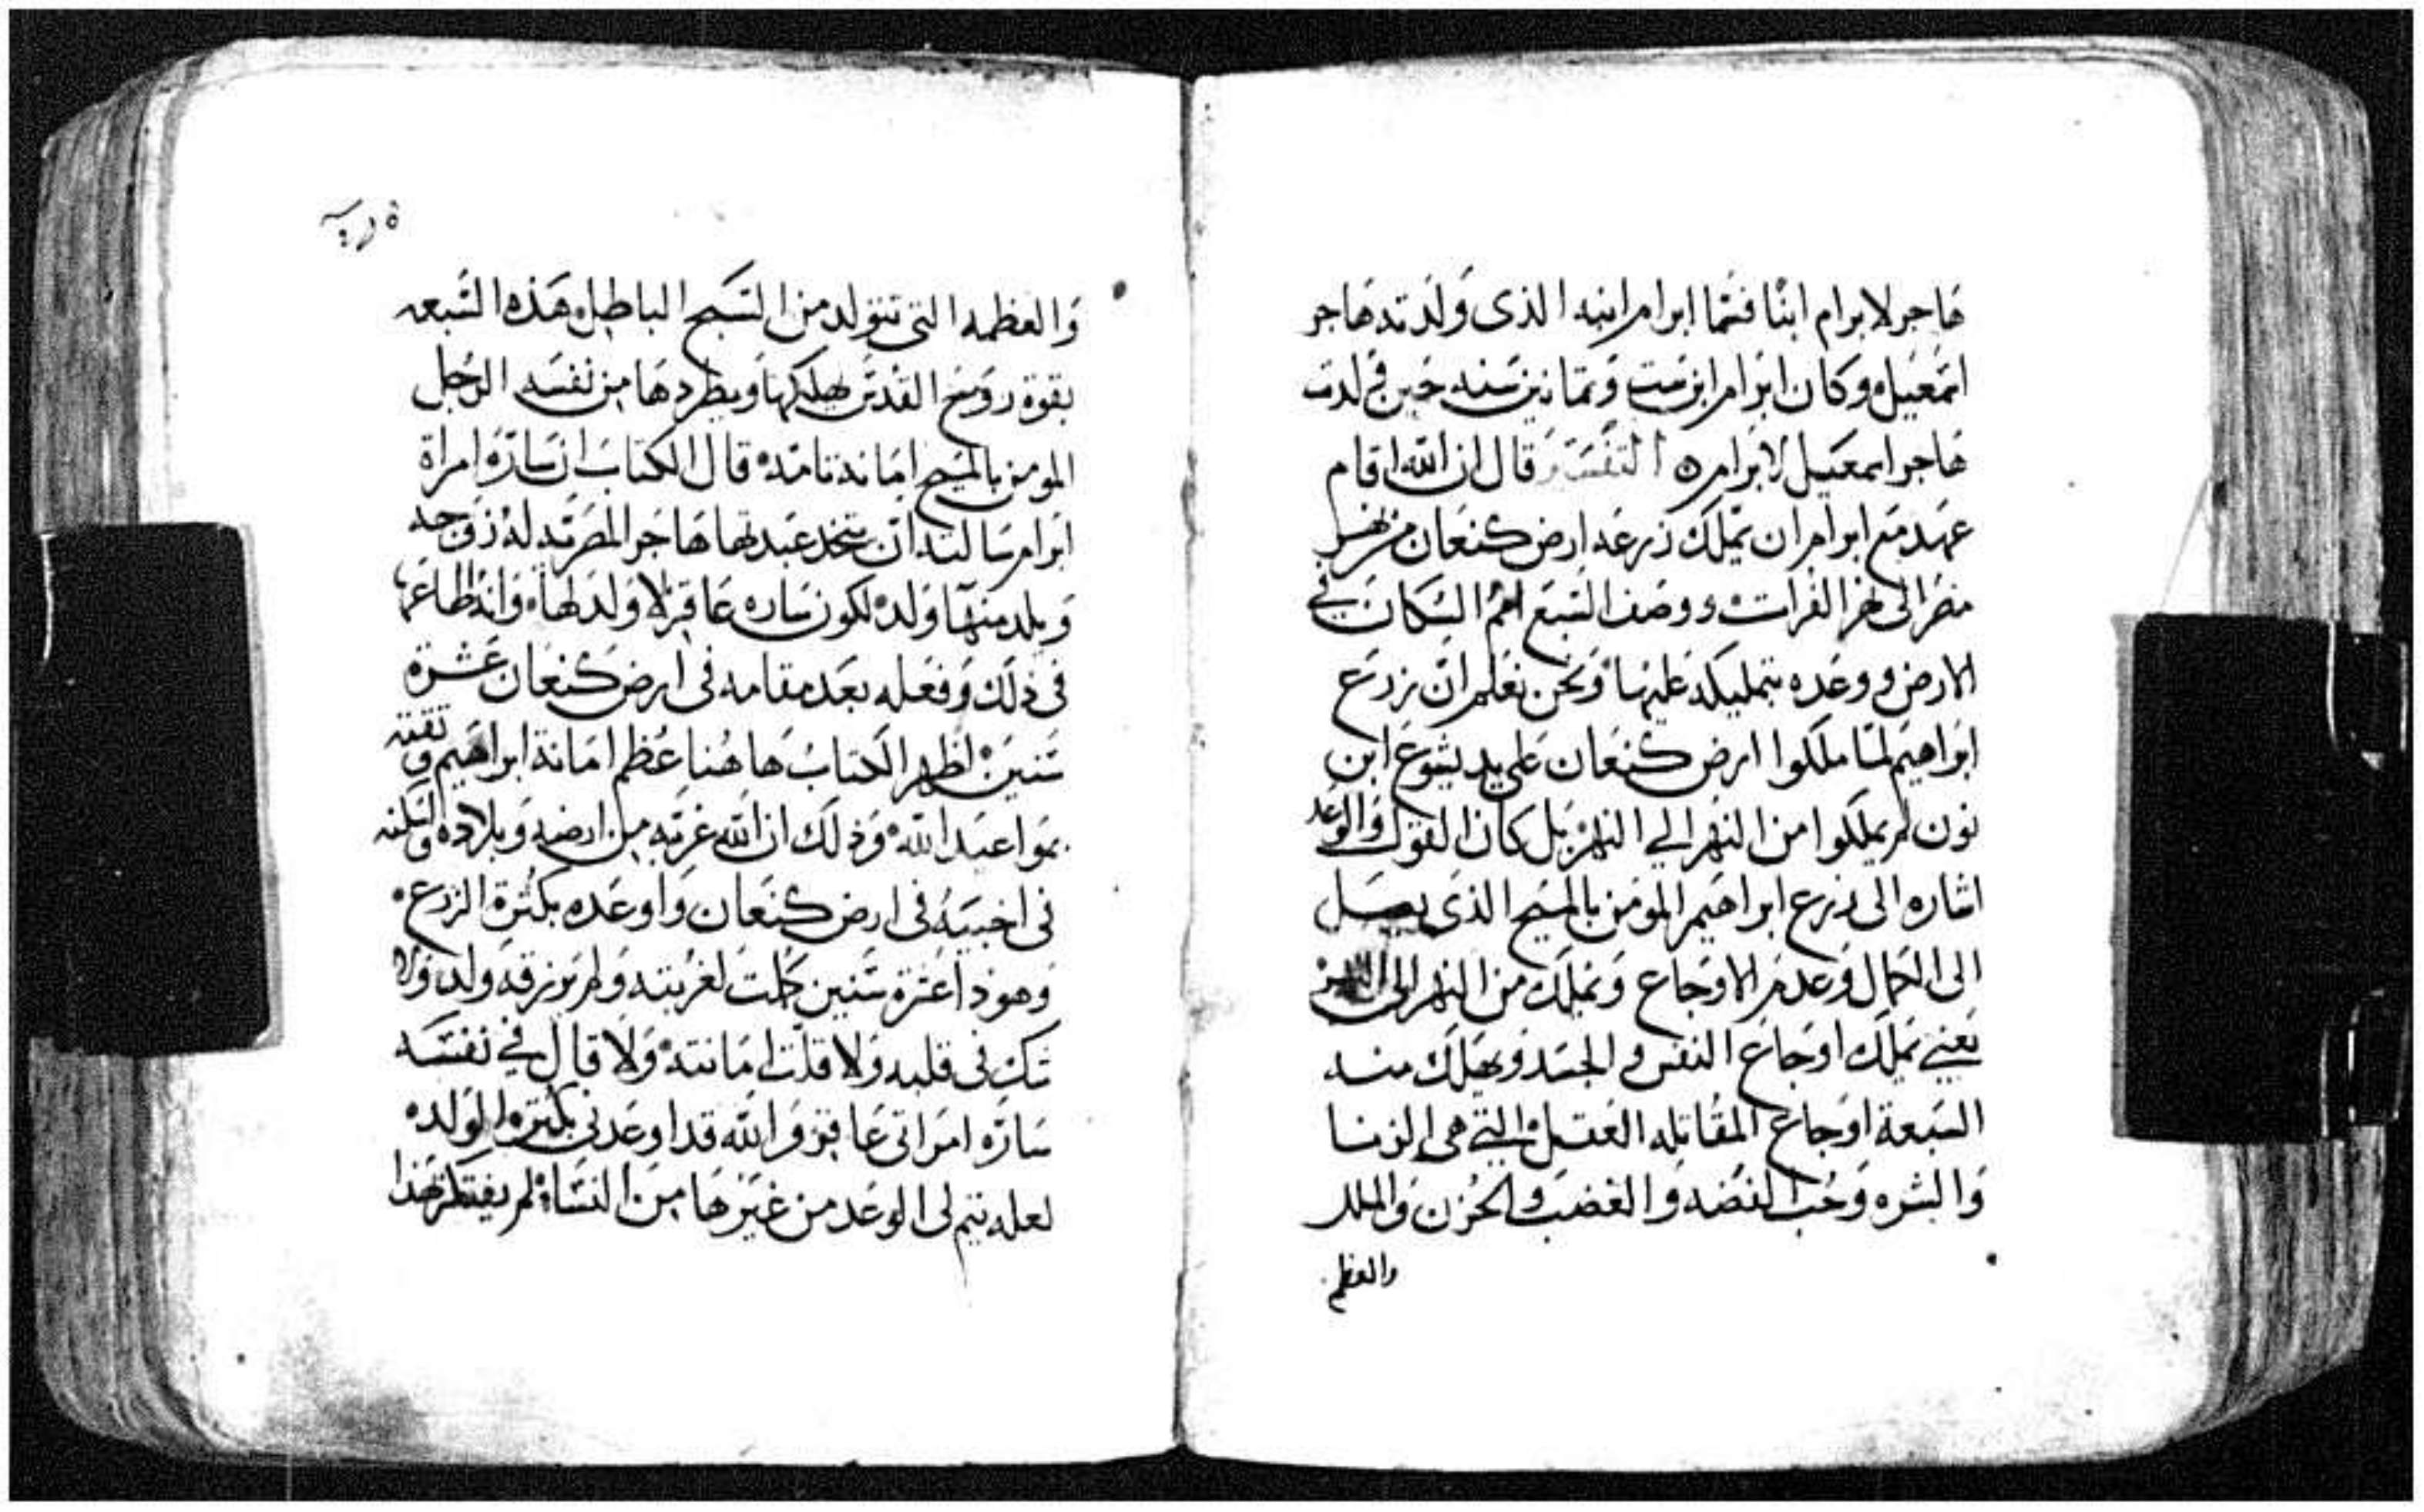 هاجر لابرام ابنا فسما ابرام ابنه الذى ولدته هاجر
اسمعيل وكان ابرام ابن ست وثمانين سنه حين ولدت
هاجر اسمعيل لابرام التفسير قال ان الله اقام
عهد مع ابرام ان يملك زرعه ارض كنعان من نهر
مصر الى نهر الفرات ووصف السبع امم السكان في
الارض ووعده بتمليكه عليها ونحن نعلم ان زرع
ابراهيم لما ملكوا ارض كنعان على يد يشوع ابن
نون لم يملكوا من النهر الي النهر بل كان القول والوعد
اشاره الى زرع ابراهيم المومن بالمسيح الذى يصل
الى الكمال وعدم الاوجاع ويملك من النهر الى النهر
يعني يملك اوجاع النفس والجسد ويهلك منه
السبعة اوجاع المقاتله العقل التي هى الزنا
والشره وحب الفضه والغضب والحزن والملل
والعظم
والعظمه التى تتولد من السبح الباطل هذه السبعه
بقوة روح القدس يهلكها ويطردها من نفسه الرجل
المومن بالمسيح امانه تامه قال الكتاب ان ساره امراة
ابرام سالته ان يتخد عبدتها هاجر المصريه له زوجه
ويلد منها ولد لكون ساره عاقر لا ولد لها وانه اطاعها
فى ذلك وفعله بعد مقامه فى ارض كنعان عشرة
سنين اظهر الكتاب هاهنا عظم امانة ابراهيم وثقته
بمواعيد الله وذلك ان الله غربه من ارضه وبلاده واسكنه
فى اخبيه فى ارض كنعان واوعده بكثرة الزرع
وهوذا عشرة سنين كملت لغربته ولم يرزقه ولد ولا
شك فى قلبه ولا قلت امانته ولا قال في نفسه
ساره امراتى عاقر والله قد اوعدنى بكثرة الولد
لعله يتم لى الوعد من غيرها من النسا لم يفتكر هذا